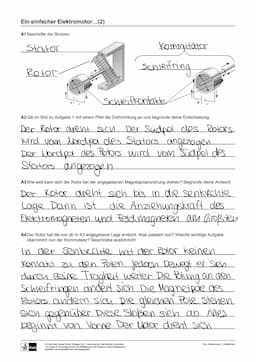 Ein einfacher Elektromotor...(2)
A1 Beschrifte die Skizzen.
Stator
Kommutator
Rotor
Schleifring
Schleifkontakte
A2 Gib im Bild zu Aufgabe 1 mit einem Pfeil die Drehrichtung an und begründe deine Entscheidung.
Der Rotor dreht sich. Der Südpol des Rotors
wird vom Nordpol des Stators angezogen
Der Nordpol des Rotors wird vom Südpol des
Stators angezogen
A3 Wie weit kann sich der Rotor bei der angegebenen Magnetpolanordnung drehen? Begründe deine Antwort!
Der Rotor dreht sich bis in die senkrechte
Lage Dann ist die Anziehungskraft des
Elektromagneten und Feldmagneten am Größten
A4 Der Rotor hat die von dir in A3 angegebene Lage erreicht. Was passiert nun? Welche wichtige Aufgabe
übernimmt nun der Kommutator? Beschreibe ausführlich!
In der Senkrechte hat der Rotor keinen
Kontakt zu den Polen jedoch bewegt er sich
durch seine Trägheit weiter Die Polung an den
Schleifringen ändert sich Die Magnetpole des
Rotors ändern sich Die gleichen Pole stehen
sich gegenüber Diese stoßen sich ab Alles
beginnt von Vorne Der Motor dreht sich